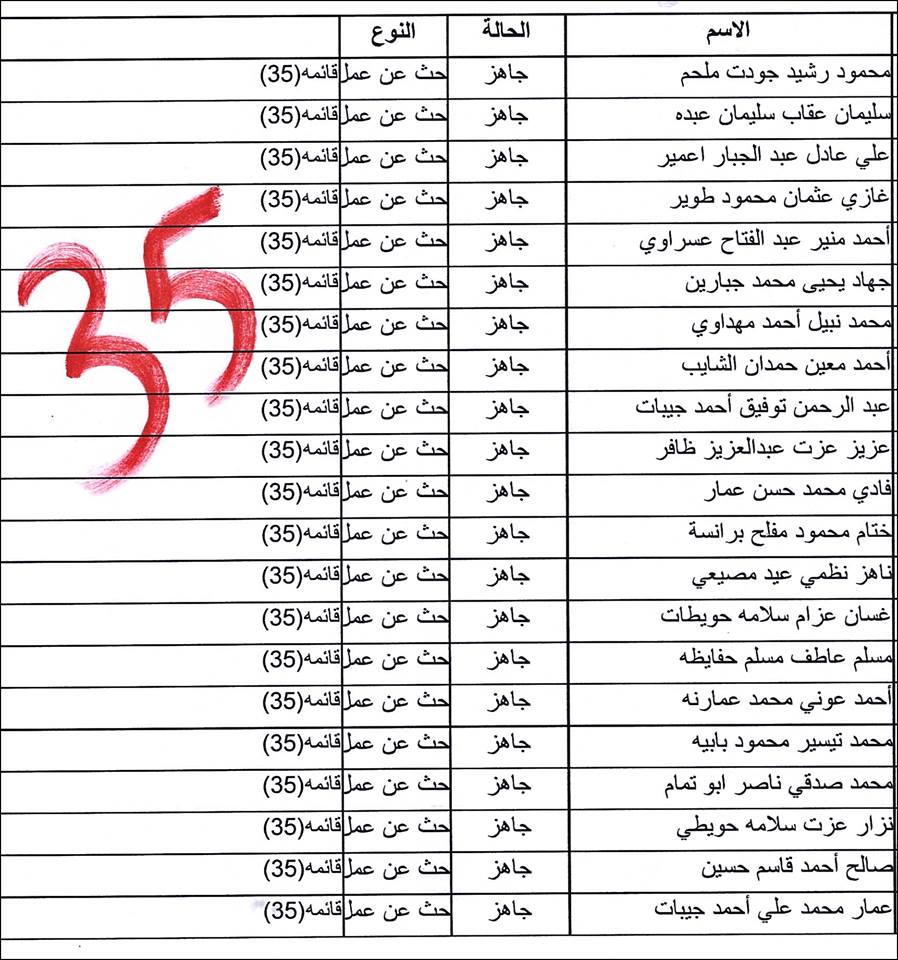 الاسم الحالة النوع
محمود رشيد جودت ملحم جاهز حث عن عمل قائمه(35)
سليمان عقاب سليمان عبده جاهز حث عن عمل قائمه(35)
علي عادل عبد الجبار اعمير جاهز حث عن عمل قائمه(35)
غازي عثمان محمود طوير جاهز حث عن عمل قائمه(35)
أحمد منير عبد الفتاح عسراوي جاهز حث عن عمل قائمه(35)
جهاد يحيى محمد جبارين جاهز حث عن عمل قائمه(35)
محمد نبيل أحمد مهداوي جاهز حث عن عمل قائمه(35)
أحمد معين حمدان الشايب جاهز حث عن عمل قائمه(35)
عبد الرحمن توفيق أحمد جيبات جاهز حث عن عمل قائمه(35)
عزيز عزت عبدالعزيز ظافر جاهز حث عن عمل قائمه(35)
فادي محمد حسن عمار جاهز حث عن عمل قائمه(35)
ختام محمود مفلح برانسة جاهز حث عن عمل قائمه(35)
ناهز نظمي عيد مصيعي جاهز حث عن عمل قائمه(35)
غسان عزام سلامه حويطات جاهز حث عن عمل قائمه(35)
مسلم عاطف مسلم حفايظه جاهز حث عن عمل قائمه(35)
أحمد عوني محمد عمارنه جاهز حث عن عمل قائمه(35)
محمد تيسير محمود بابيه جاهز حث عن عمل قائمه(35)
محمد صدقي ناصر ابو تمام جاهز حث عن عمل قائمه(35)
نزار عزت سلامه حويطي جاهز حث عن عمل قائمه(35)
صالح أحمد قاسم حسين جاهز حث عن عمل قائمه(35)
عمار محمد علي أحمد جيبات جاهز حث عن عمل قائمه(35)
35